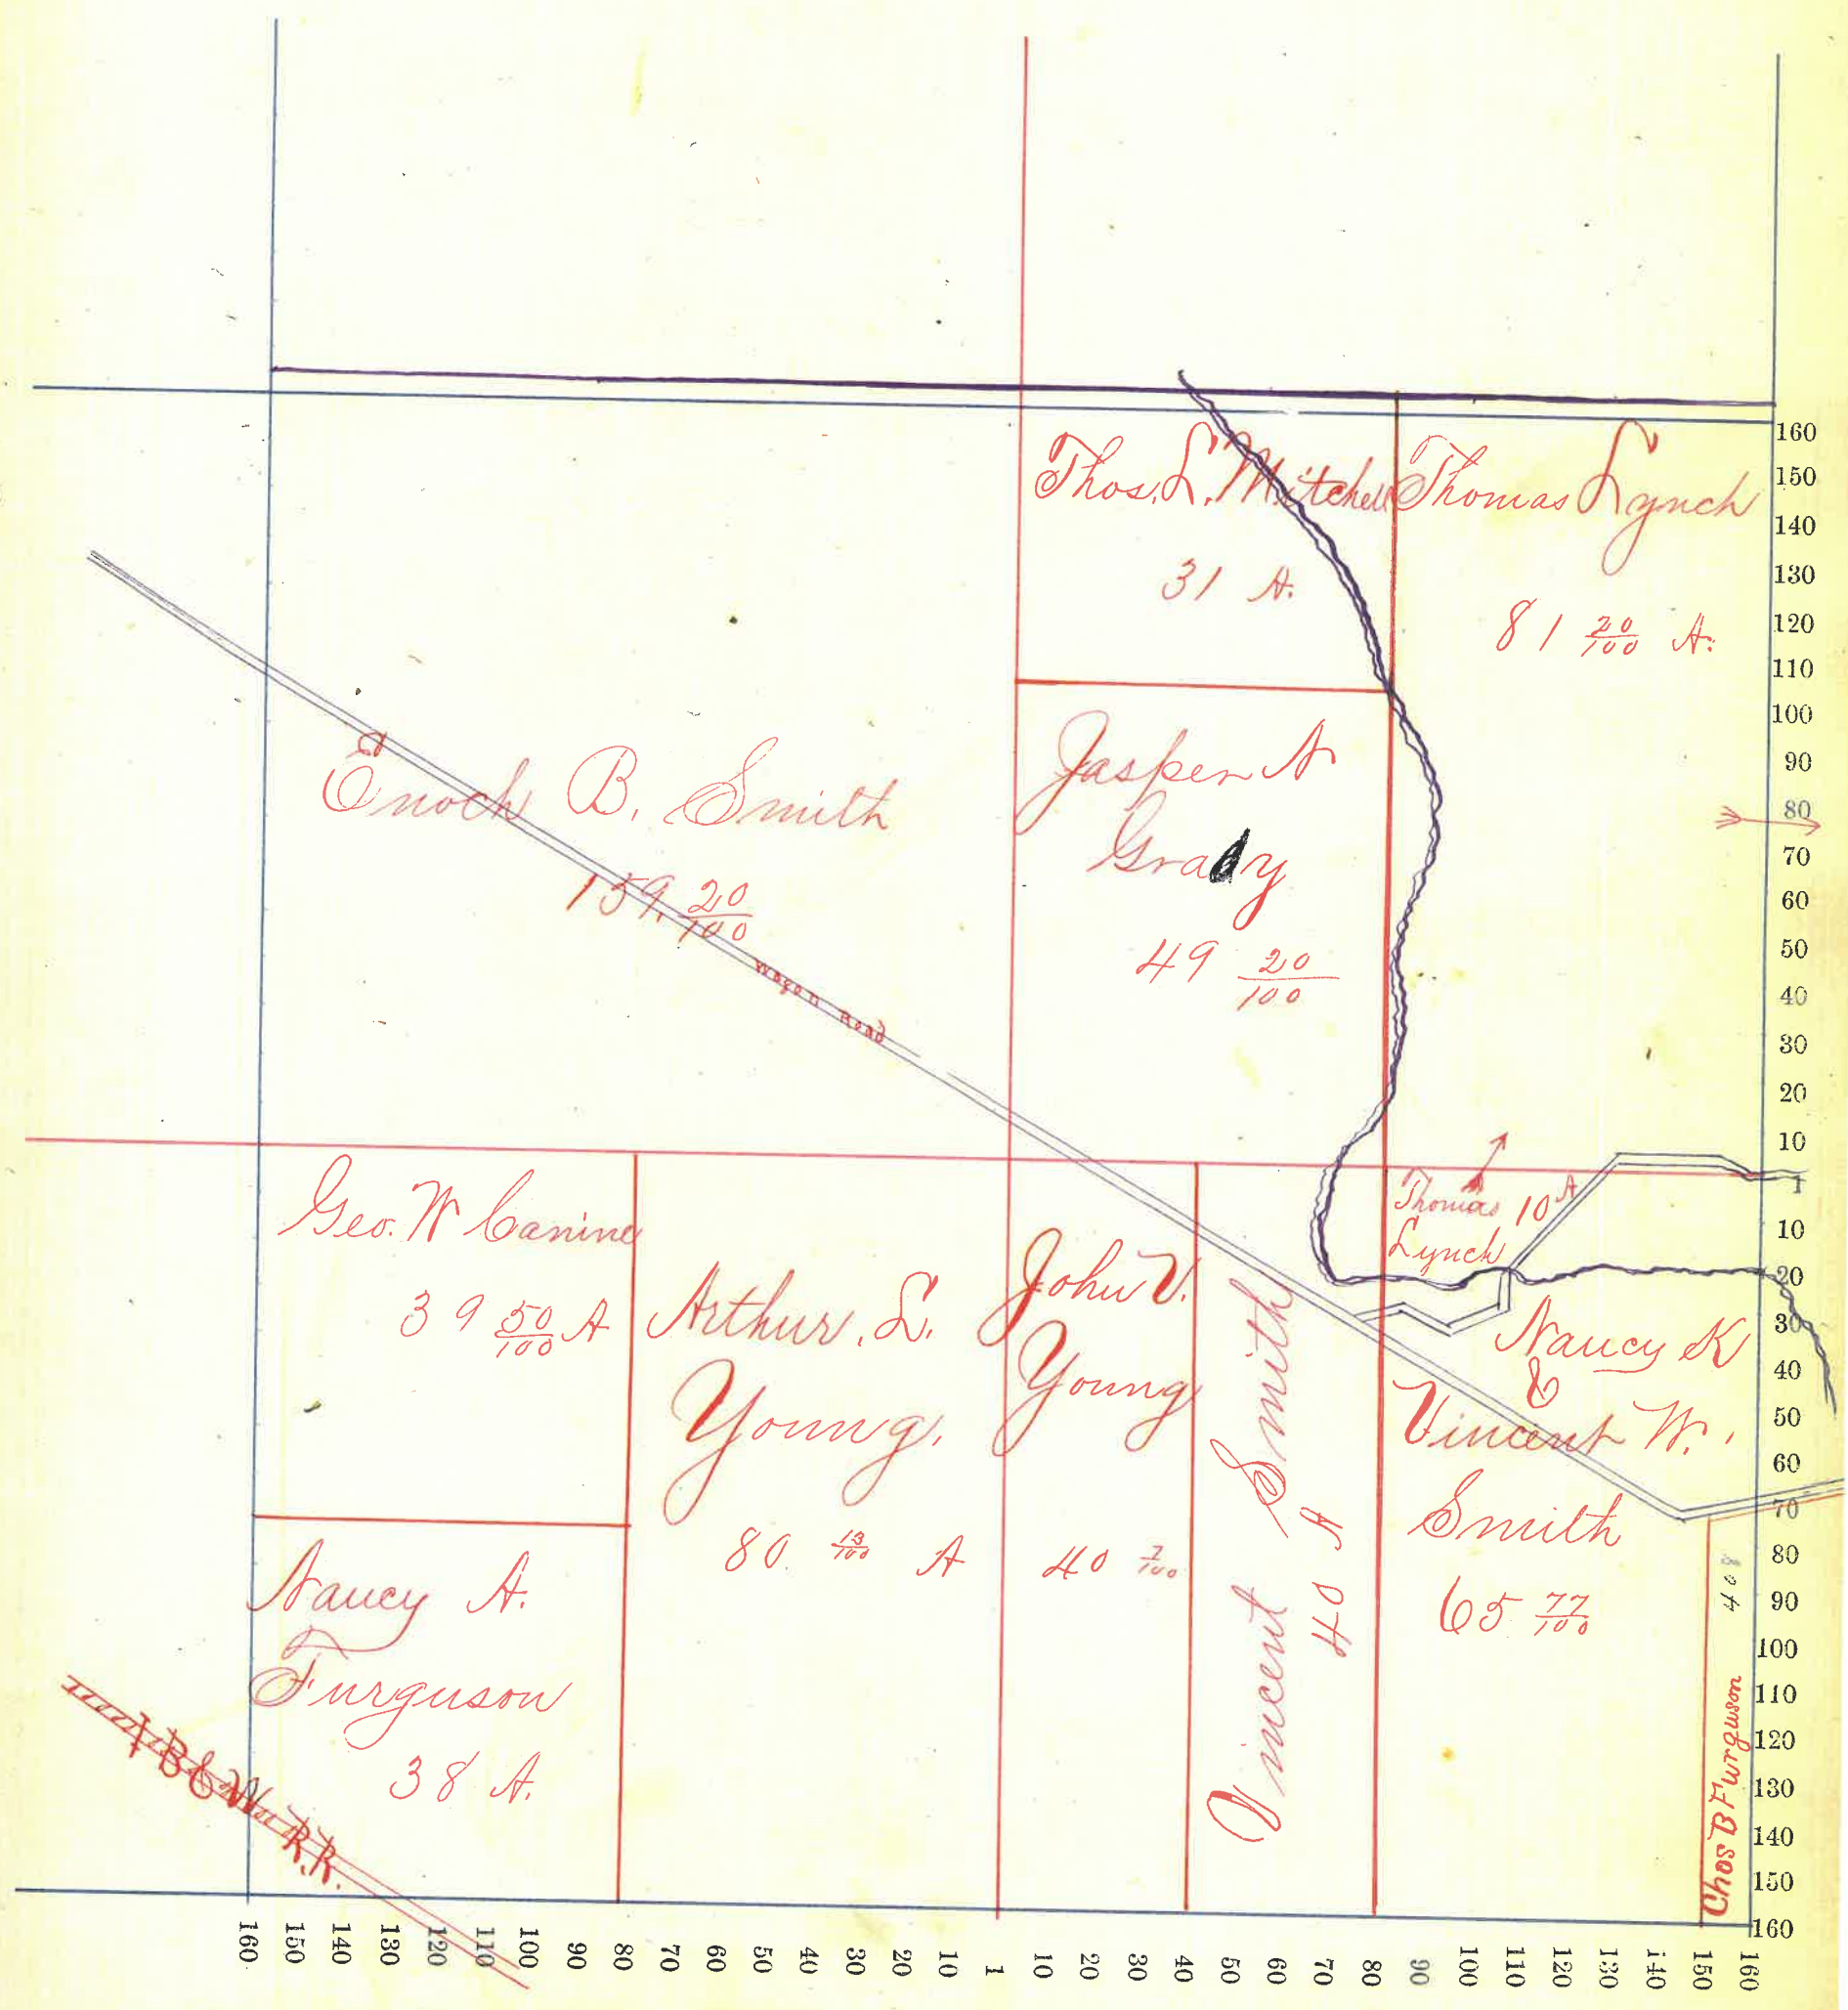 Thos. L. Mitchell
31 A.
Thomas Lynch
81 20/100 A.
Enoch B. Smith
159. 20/100
Wagon Road
Jasper N
Grady
49 20/100
Geo. W Canine
39 50/100 A
Arthur. L.
Young.
80. 13/100 A
John V.
Young
40 7/100
Vincent Smith
40 A
Thomas 10 A
Lynch
Nancy K
&
Vincent W.
Smith
65 77/100
Nancy A.
Furguson
38 A.
I B & W R.R.
Chas B Furguson
160
150
140
130
120
110
100
90
80
70
60
50
40
30
20
10
1
10
20
30
40
50
60
70
80
90
100
110
120
130
140
150
160
160 150 140 130 120 110 100 90 80 70 60 50 40 30 20 10 1 10 20 30 40 50 60 70 80 90 100 110 120 130 140 150 160